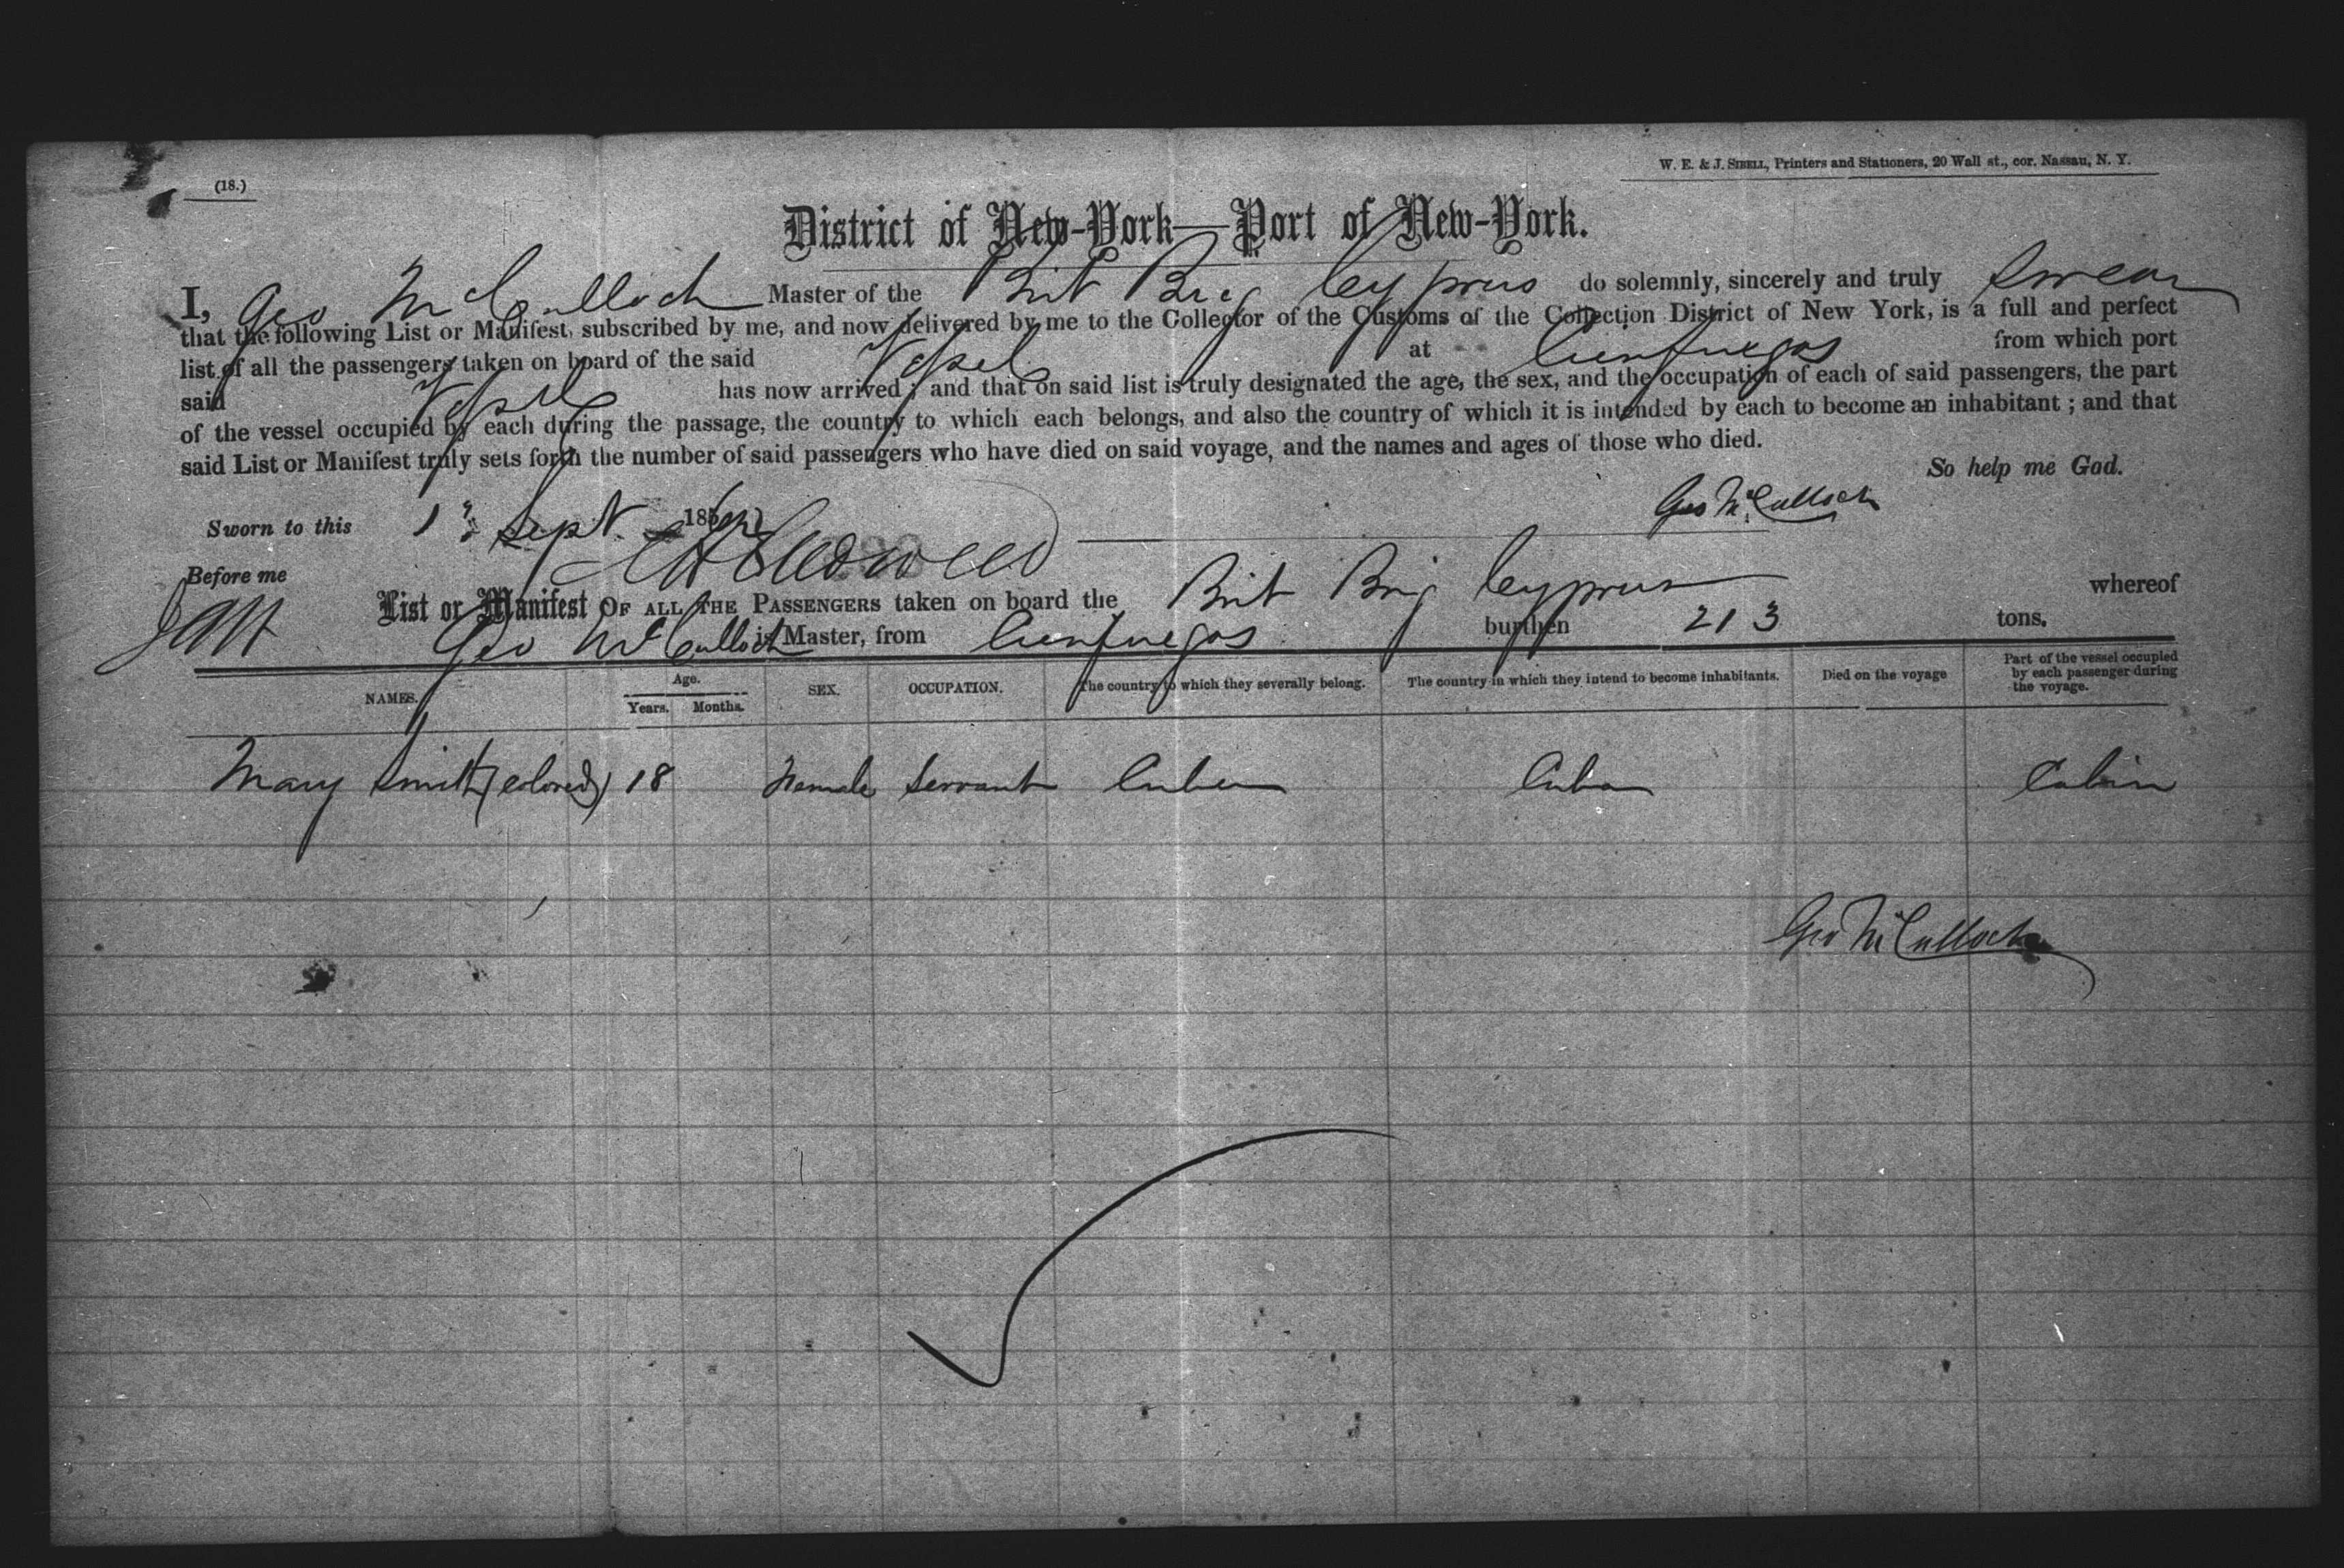 (18.)
W. E. & J. SIBELL, Printers and Stationers, 20 Wall st., cor. Nassau, N. Y.
District of New-York—Port of New-York.
I, Geo McCulloch Master of the Brit Brig Cyprus do solemnly, sincerely and truly swear
that the following List or Manifest, subscribed by me, and now delivered by me to the Collector of the Customs of the Collection District of New York, is a full and perfect
list of all the passengers taken on board of the said Vessel at Cienfuegos from which port
said Vessel has now arrived; and that on said list is truly designated the age, the sex, and the occupation of each of said passengers, the part
of the vessel occupied by each during the passage, the country to which each belongs, and also the country of which it is intended by each to become an inhabitant; and that
said List or Manifest truly sets forth the number of said passengers who have died on said voyage, and the names and ages of those who died.
So help me God.
Sworn to this 1 Sept. 186
Geo McCulloch
Before me
List or Manifest OF ALL THE PASSENGERS taken on board the Brit Brig Cyprus whereof
Geo McCulloch is Master, from Cienfuegos burthen 213 tons.
NAMES. Age. Years. Months. SEX. OCCUPATION. The country to which they severally belong. The country in which they intend to become inhabitants. Died on the voyage Part of the vessel occupied by each passenger during the voyage.
Mary Smith (colored) 18 Female Servant Cuba Cuba Cabin
Geo McCulloch